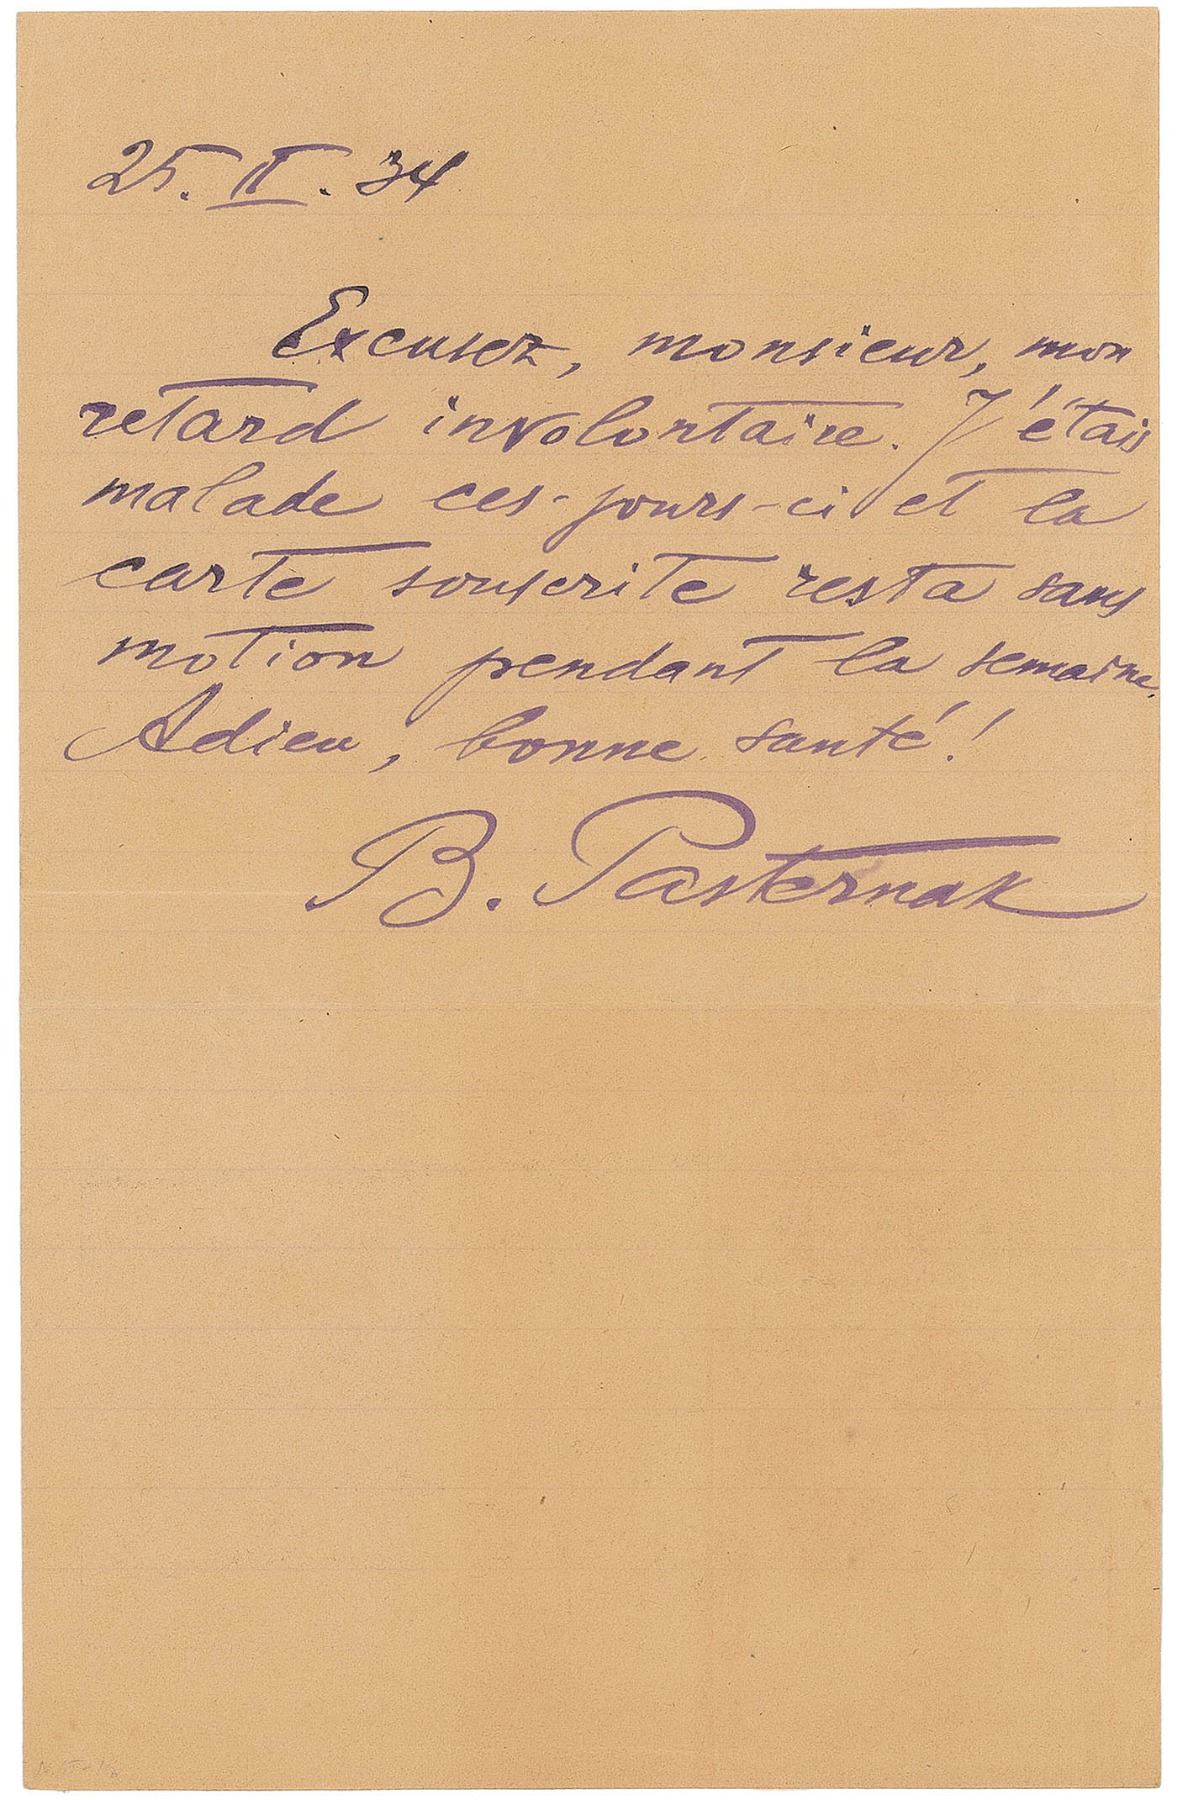 25. II. 34
Excusez, monsieur, mon
retard involontaire. J'étais
malade ces-jours-ci et la
carte souscrite resta sans
motion pendant la semaine.
Adieu, bonne santé!
B. Pasternak